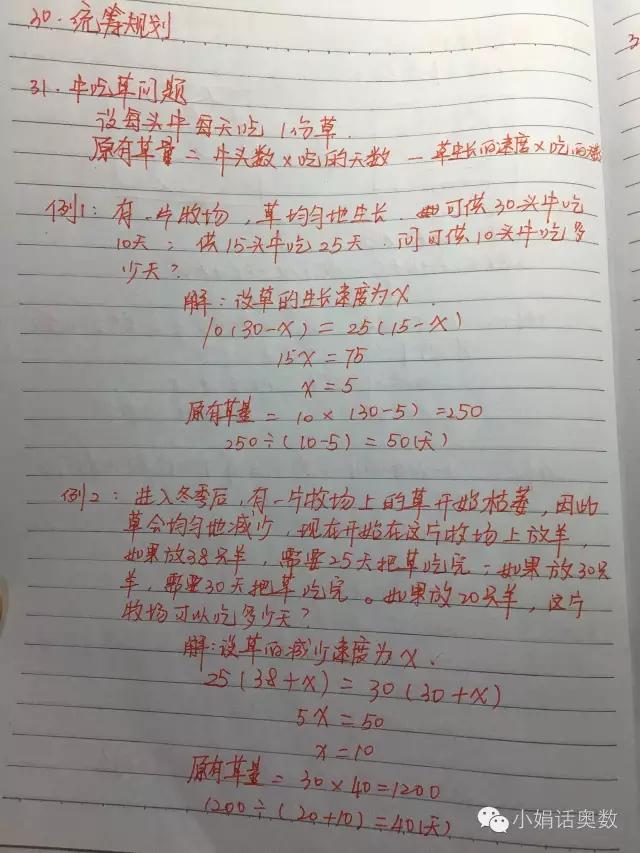 30. 统筹规划
31. 牛吃草问题
设每头牛每天吃1份草.
原有草量 = 牛头数×吃的天数 - 草生长的速度×吃的
例1: 有一片牧场, 草均匀地生长. 可供30头牛吃
10天; 供15头牛吃25天. 问可供10头牛吃多
少天?
解: 设草的生长速度为x.
10(30-x) = 25(15-x)
15x = 75
x = 5
原有草量 = 10×(30-5) = 250
250÷(10-5) = 50(天)
例2: 进入冬季后, 有一片牧场上的草开始枯萎, 因此
草会均匀地减少, 现在开始在这片牧场上放羊,
如果放38只羊, 需要25天把草吃完; 如果放30只
羊, 需要30天把草吃完。如果放20只羊, 这片
牧场可以吃多少天?
解: 设草的减少速度为x.
25(38+x) = 30(30+x)
5x = 50
x = 10
原有草量 = 30×40 = 1200
1200÷(20+10) = 40(天)
小娟话奥数